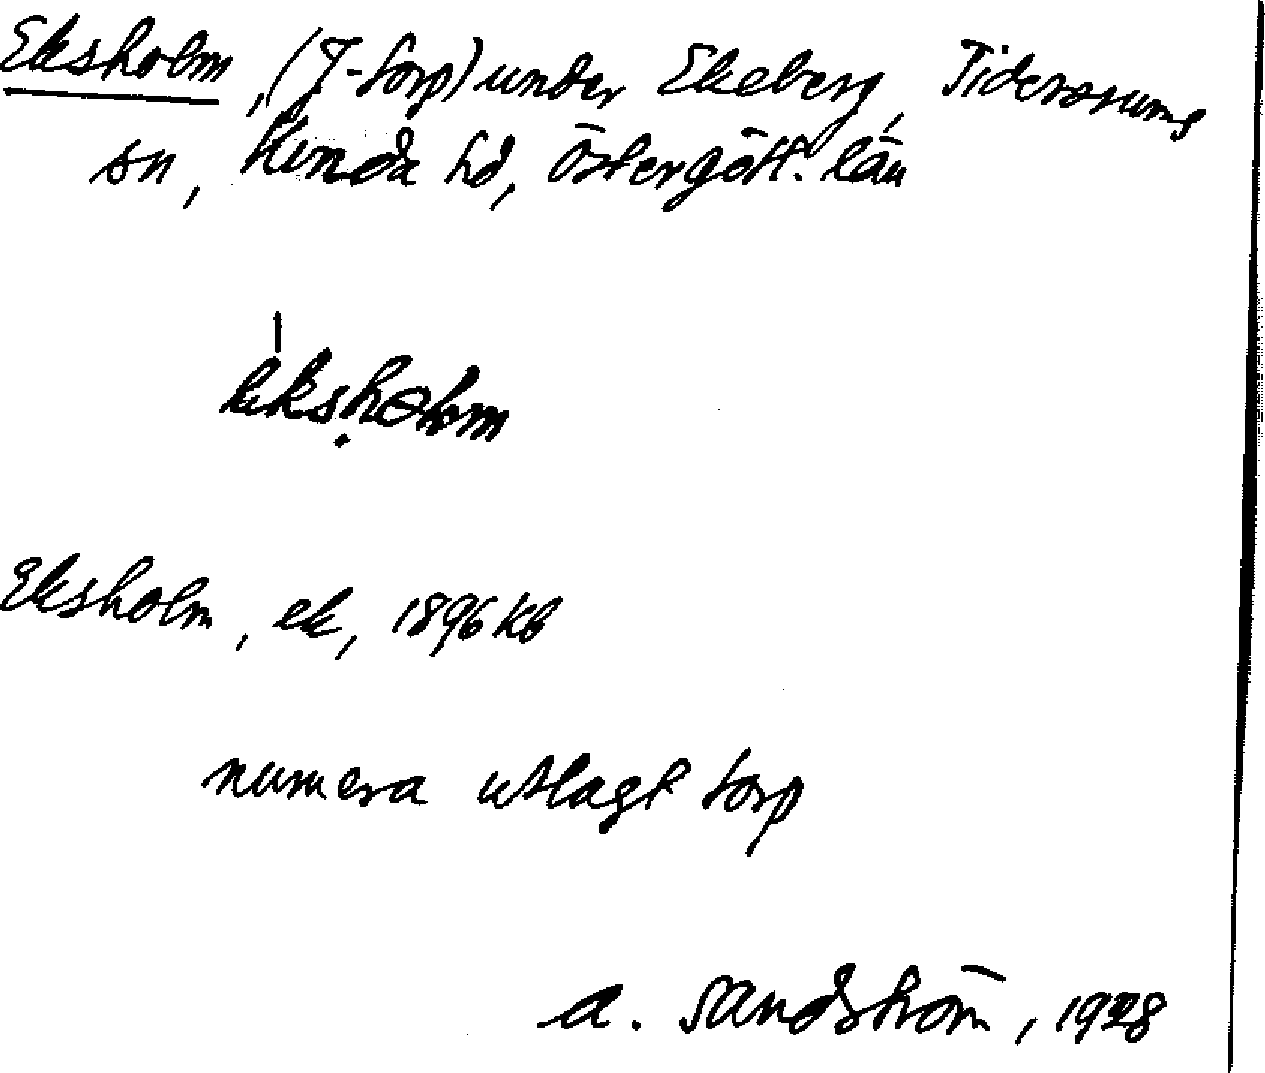 Eksholm, (T-torp) under Ekeberg, Tidersrums
sn, Kinda hd, Östergötl. län
Eksholm, ek, 1896 kb
numera utlagt torp
A. Sandström, 1928